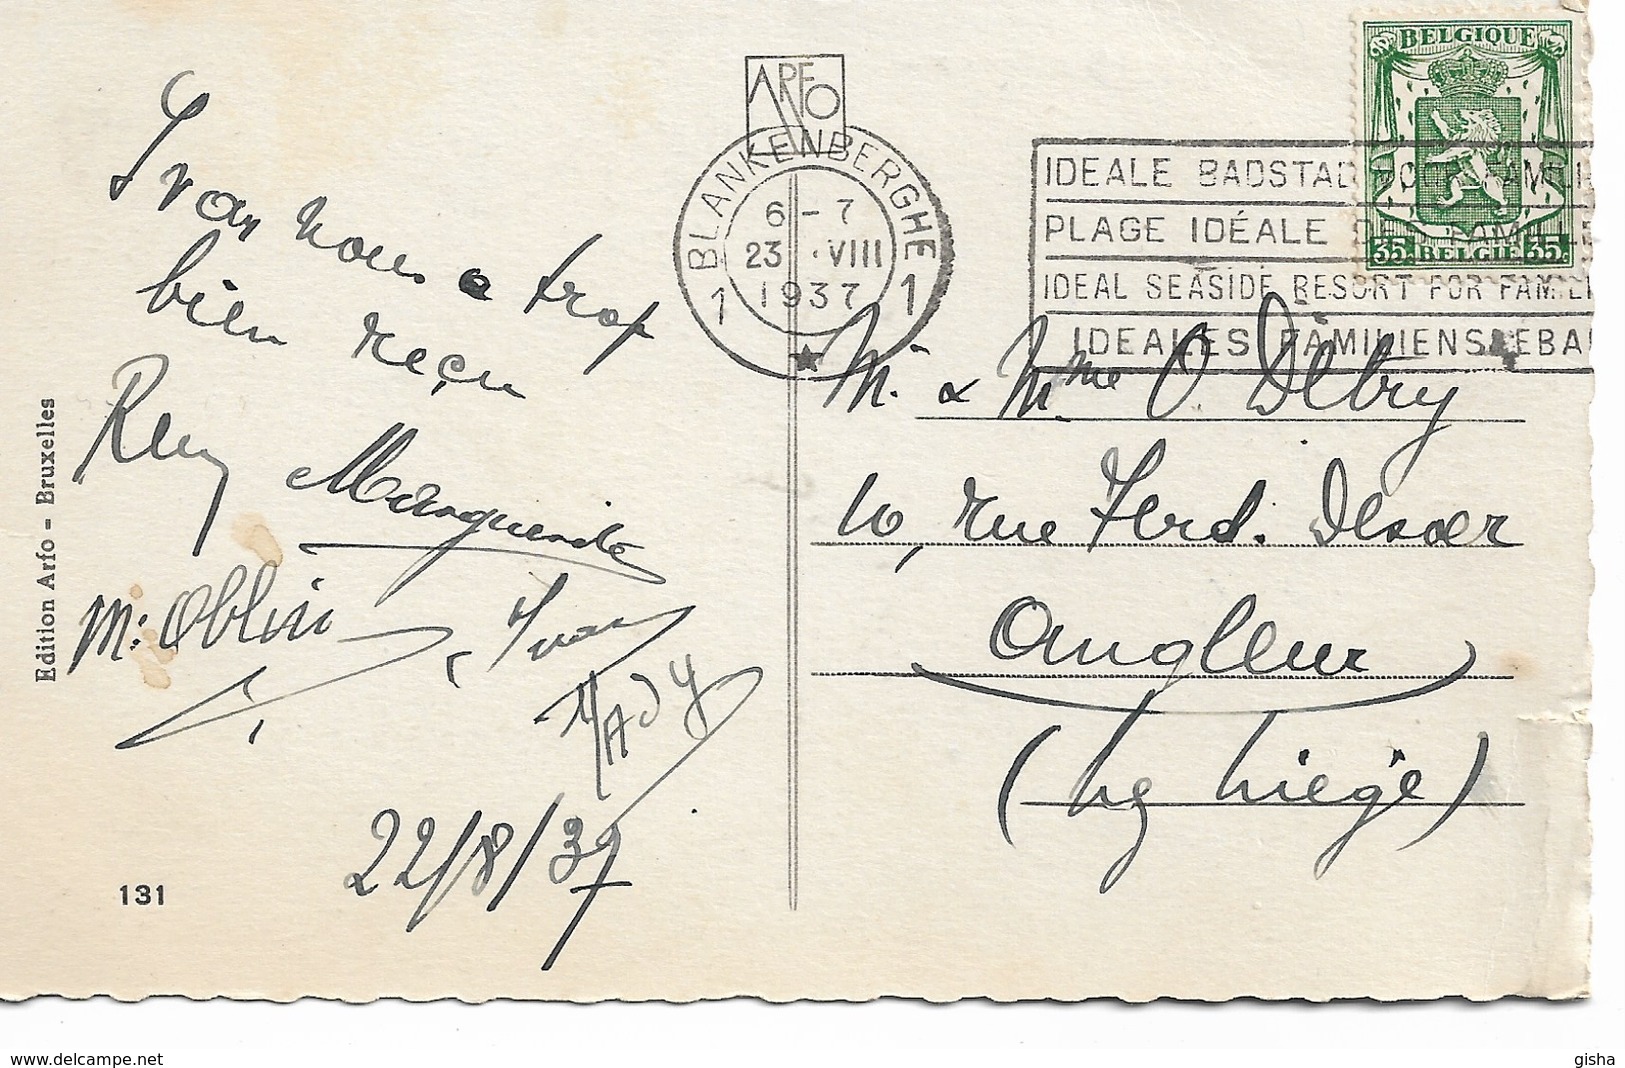 Ivan nous a trop
bien reçu
Remy
Marguerite
M. Oblin
Ivan
Mady
22/8/37
131
Edition Arfo - Bruxelles
ARFO
BLANKENBERGHE
6 - 7
23 .VIII
1937
1 1
IDEALE BADSTAD VOOR FAMILI
PLAGE IDÉALE DES FAMILLES
IDEAL SEASIDE RESORT FOR FAMILI
IDEALES FAMILIENSEEBA
BELGIQUE
35c BELGIË 35c
M. & Mme O Debry
10, rue Ferd. Desoer
Angleur
(lez Liège)
www.delcampe.net
gisha